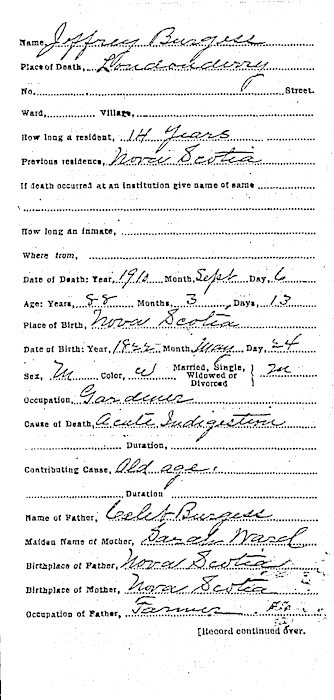 Name, Joffrey Burgess
Place of Death, Londonderry
No. Street.
Ward, Village,
How long a resident, 14 Years
Previous residence, Nova Scotia
If death occurred at an institution give name of same
How long an inmate,
Where from,
Date of Death: Year, 1910 Month, Sept Day, 6
Age: Years, 88 Months, 3 Days, 13
Place of Birth, Nova Scotia
Date of Birth: Year, 1822 Month, May Day, 24
Sex, M Color, W Married, Single, Widowed or Divorced } M
Occupation, Gardener
Cause of Death, Acute Indigestion
Duration,
Contributing Cause, Old age.
Duration
Name of Father, Burgess
Maiden Name of Mother, Sarah Ward
Birthplace of Father, Nova Scotia
Birthplace of Mother, Nova Scotia
Occupation of Father, Farmer
[Record continued over.